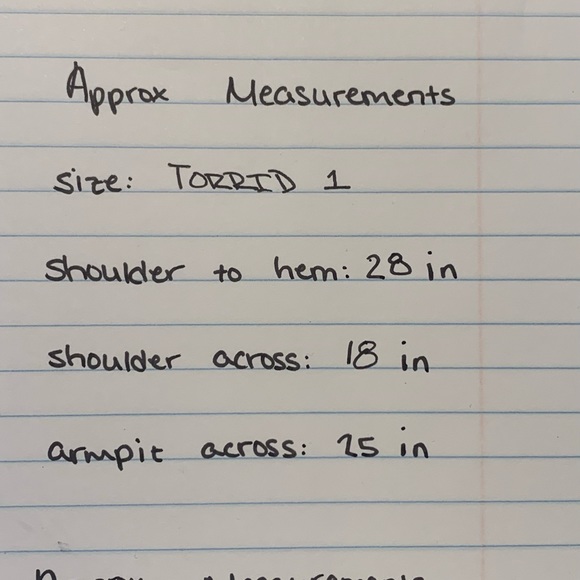 Approx Measurements
size: TORRID 1
shoulder to hem: 28 in
shoulder across: 18 in
armpit across: 25 in